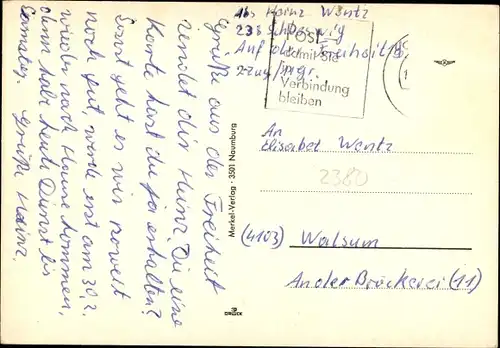 Grüße aus der Freiheit
sendet dir Heinz. Die eine
Karte hast du ja erhalten?
Sonst geht es mir soweit
noch gut, werde erst am 30,2
wieder nach Hause kommen,
denn habe heute Dienst bis
Samstag. Grüße Heinz.
Abs Heinz Wentz
238 Schleswig
Auf der Freiheit
Post
damit Sie
in
Verbindung
bleiben
Merkel-Verlag · 3501 Naumburg
DRUCK
An
Elisabet Wentz
2380
(4103) Walsum
An der Brückerei (11)